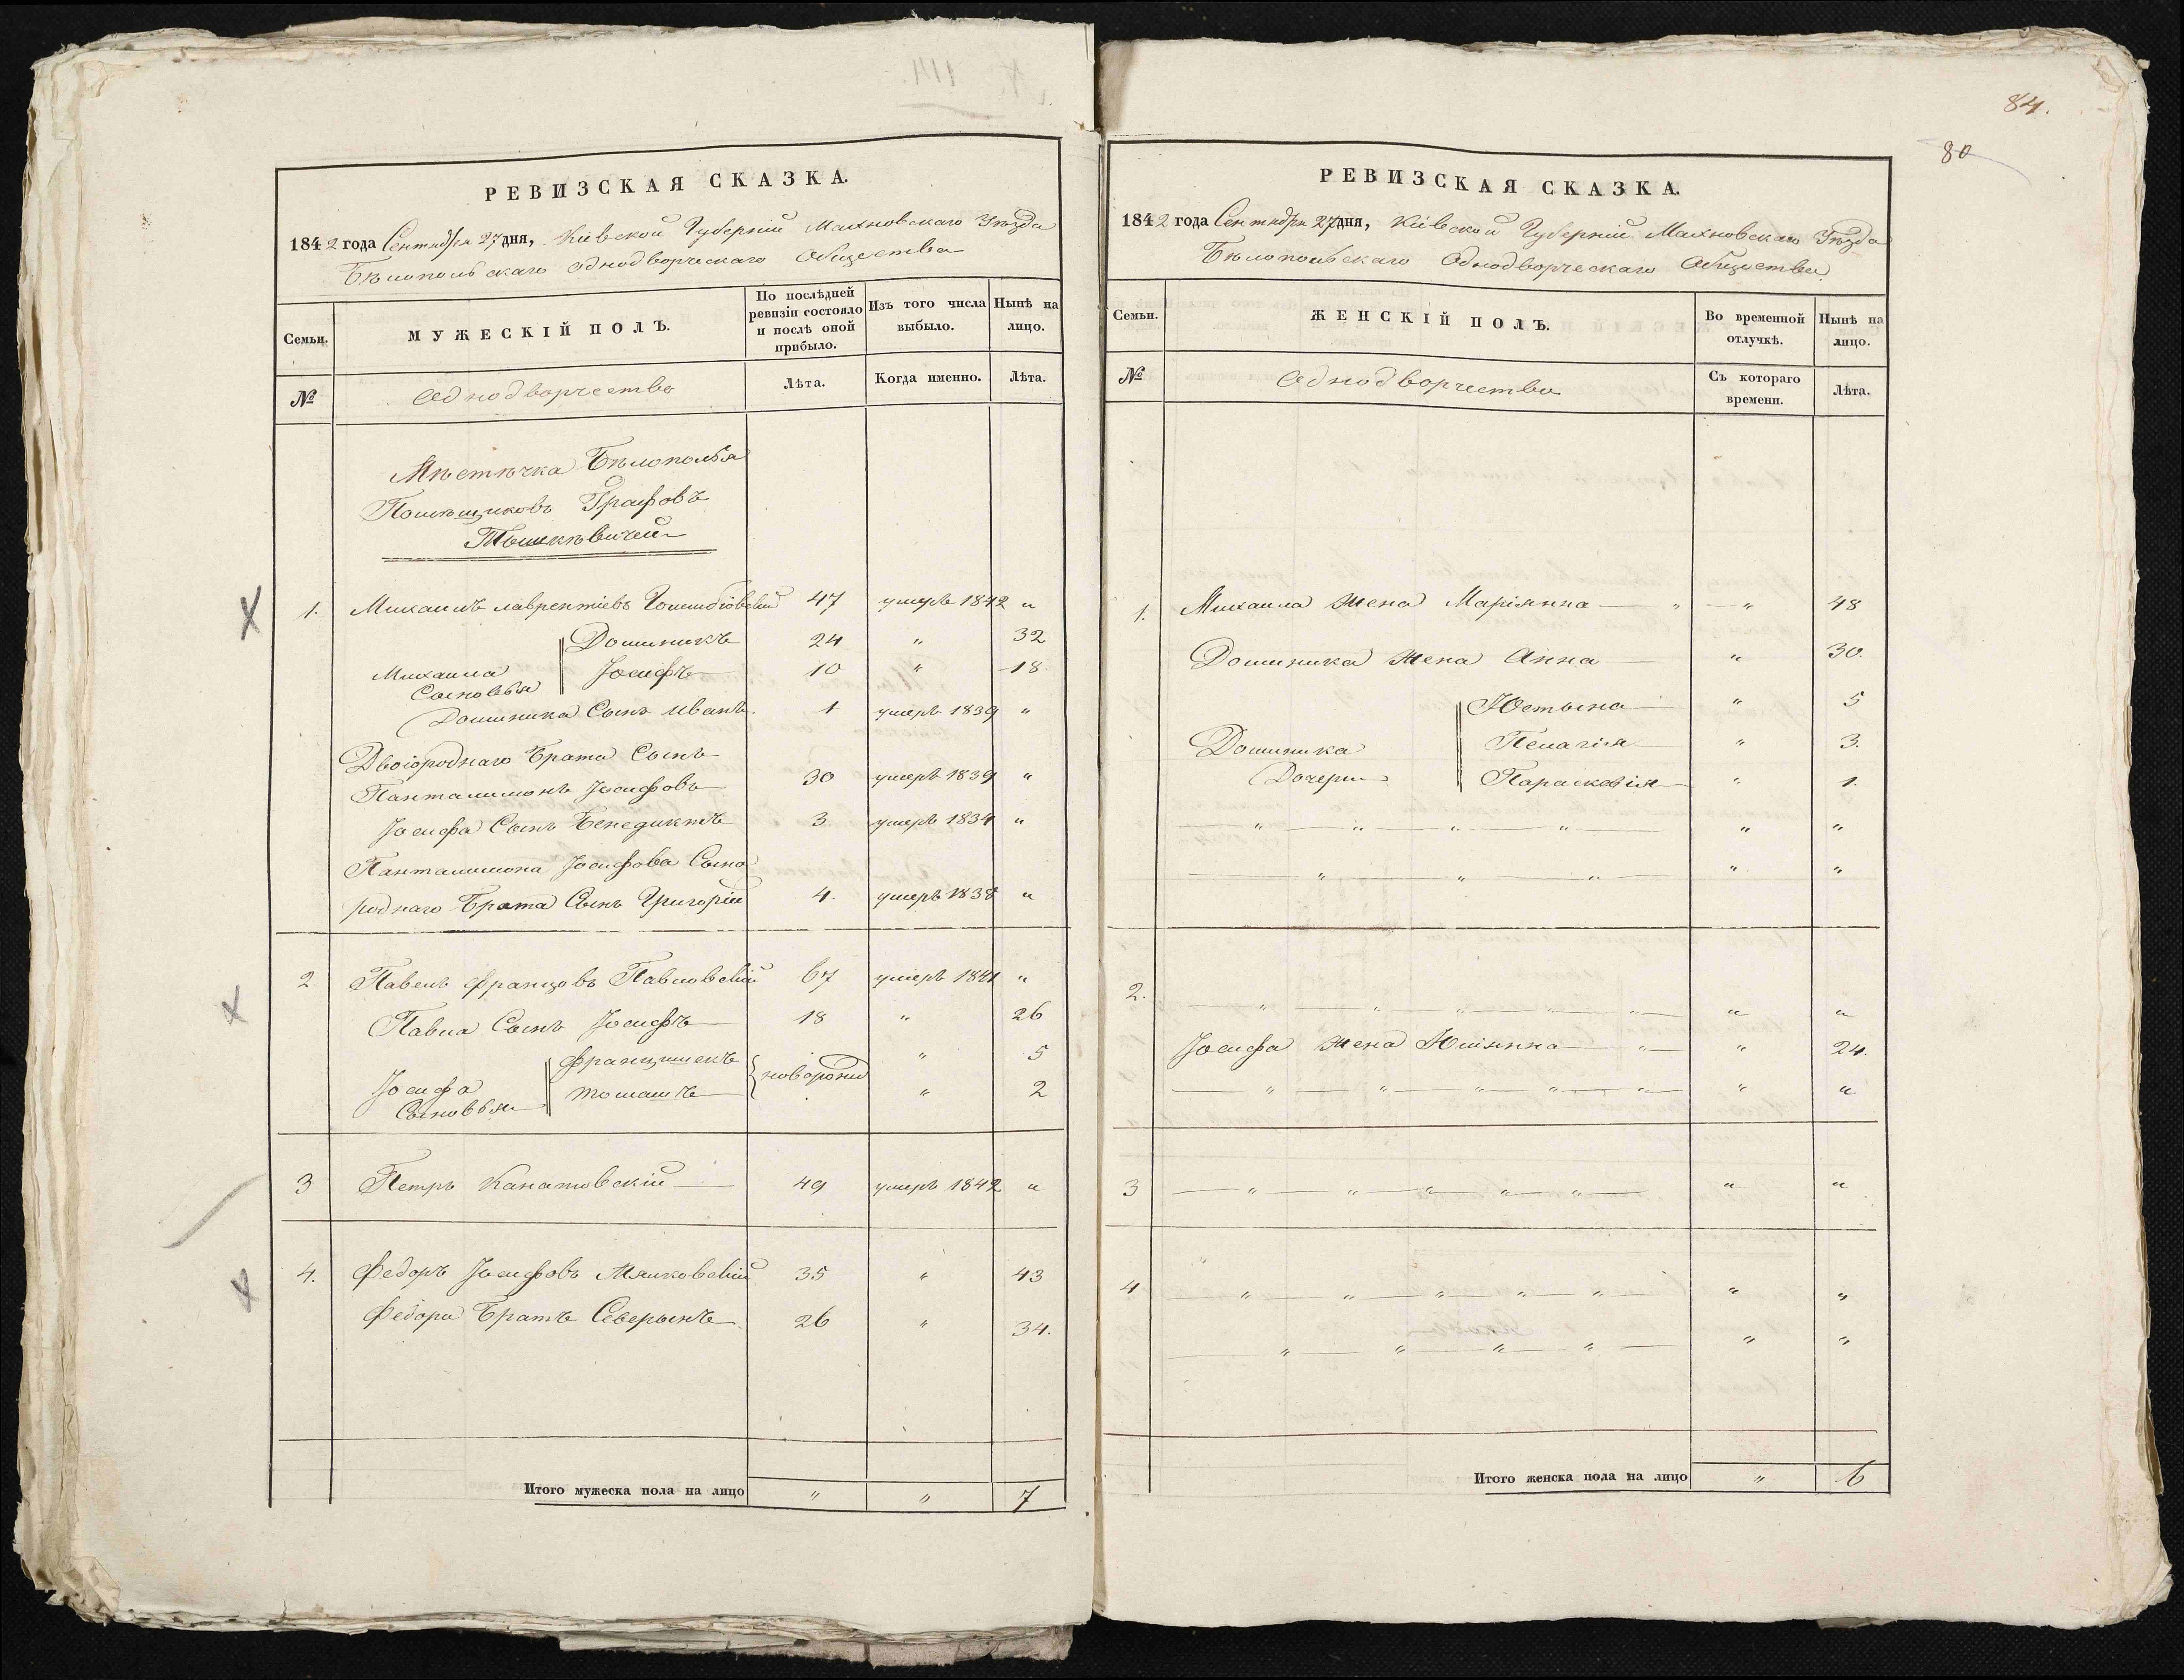 РЕВИЗСКАЯ СКАЗКА.
1842 года Сентября 27 дня, Кіевской Губерніи Махновскаго Уѣзда
Бѣлопольскаго Однодворческаго Общества
Семьи. МУЖЕСКІЙ ПОЛЪ. По послѣдней ревизіи состояло и послѣ оной прибыло. Изъ того числа выбыло. Нынѣ на лицо.
№ Однодворчество Лѣта. Когда именно. Лѣта.
Мѣстѣчка Бѣлополья
Помѣщиковъ Графовъ
Тышкѣвичей
1. Михаилъ Лаврентіевъ 47 умеръ 1842 "
Доминикъ 24 " 32
Михаила Іосифъ 10 " 18
Сыновья
Доминика Сынъ Иванъ 1 умеръ 1839 "
Двоюроднаго Брата Сынъ
Панталимонъ Іосифовъ 30 умеръ 1839 "
Іосифа Сынъ Бенедиктъ 3 умеръ 1834 "
Панталимона Іосифова Сына
роднаго Брата Сынъ Григорій 4. умеръ 1838 "
2. Павелъ Францовъ Павловскій 67 умеръ 1841 "
Павла Сынъ Іосифъ 18 " 26
Францишекъ " 5
Іосифа новорожд
Сыновья Томашъ " 2
3 Петръ Канатовскій 49 умеръ 1842 "
4. Федоръ Іосифовъ Мялковскій 35 " 43
Федора Братъ Северынъ 26 " 34.
Итого мужеска пола на лицо " " 7
84.
80
РЕВИЗСКАЯ СКАЗКА.
1842 года Сентября 27 дня, Кіевской Губерніи Махновскаго Уѣзда
Бѣлопольскаго Однодворческаго Общества
Семьи. ЖЕНСКІЙ ПОЛЪ. Во временной отлучкѣ. Нынѣ на лицо.
№ Однодворчество Съ котораго времени. Лѣта.
1. Михаила жена Маріянна " " 48
Доминика жена Анна " 30.
Юстына " 5
Доминика Пелагія " 3.
Дочери Параскевія " 1.
" " " " " "
" " " " "
2. " " " " " "
Іосифа жена Юліянна " " 24.
" " " " " " "
3 " " " " " " "
4 " " " " " " "
" " " " " "
Итого женска пола на лицо " 6